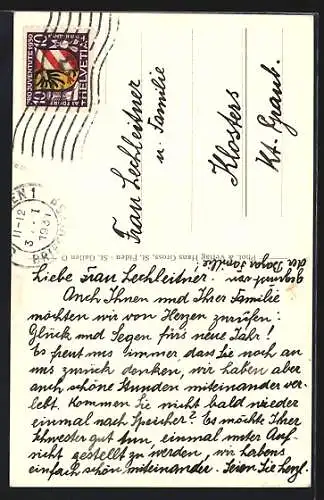 PRO JUVENTUTE 1930
10 10
ALTDORF
HELVETIA
11-12
3. I
1931
BRIEF
Frau Lechleitner
u. Familie
Klosters
Kt. Graub.
Phot. & Verlag Hans Gross, St. Fiden - St. Gallen O
Liebe Frau Lechleitner!
Auch Ihnen und Ihrer Familie
möchten wir von Herzen zurufen:
Glück und Segen fürs neue Jahr!
Es freut uns immer, dass Sie noch an
uns zurück denken, wir haben aber
auch schöne Stunden miteinander ver-
lebt. Kommen Sie nicht bald wieder
einmal nach Speicher? Es möchte Ihrer
Schwester gut tun, einmal unter Auf-
sicht gestellt zu werden, wir habens
einfach schön miteinander. Seien Sie herzl.
gegrüsst von
der Familie!